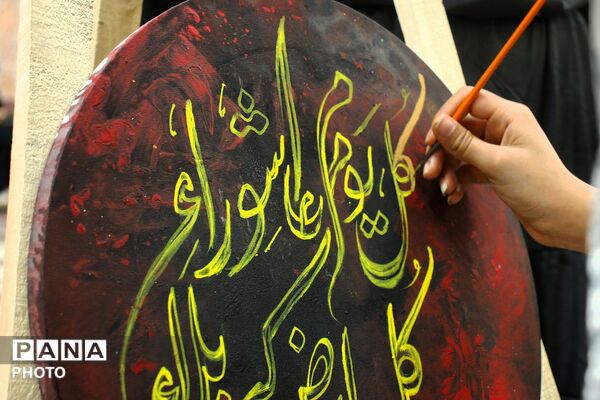 كل يوم عاشوراء
كل ارض كربلاء
PANA
PHOTO